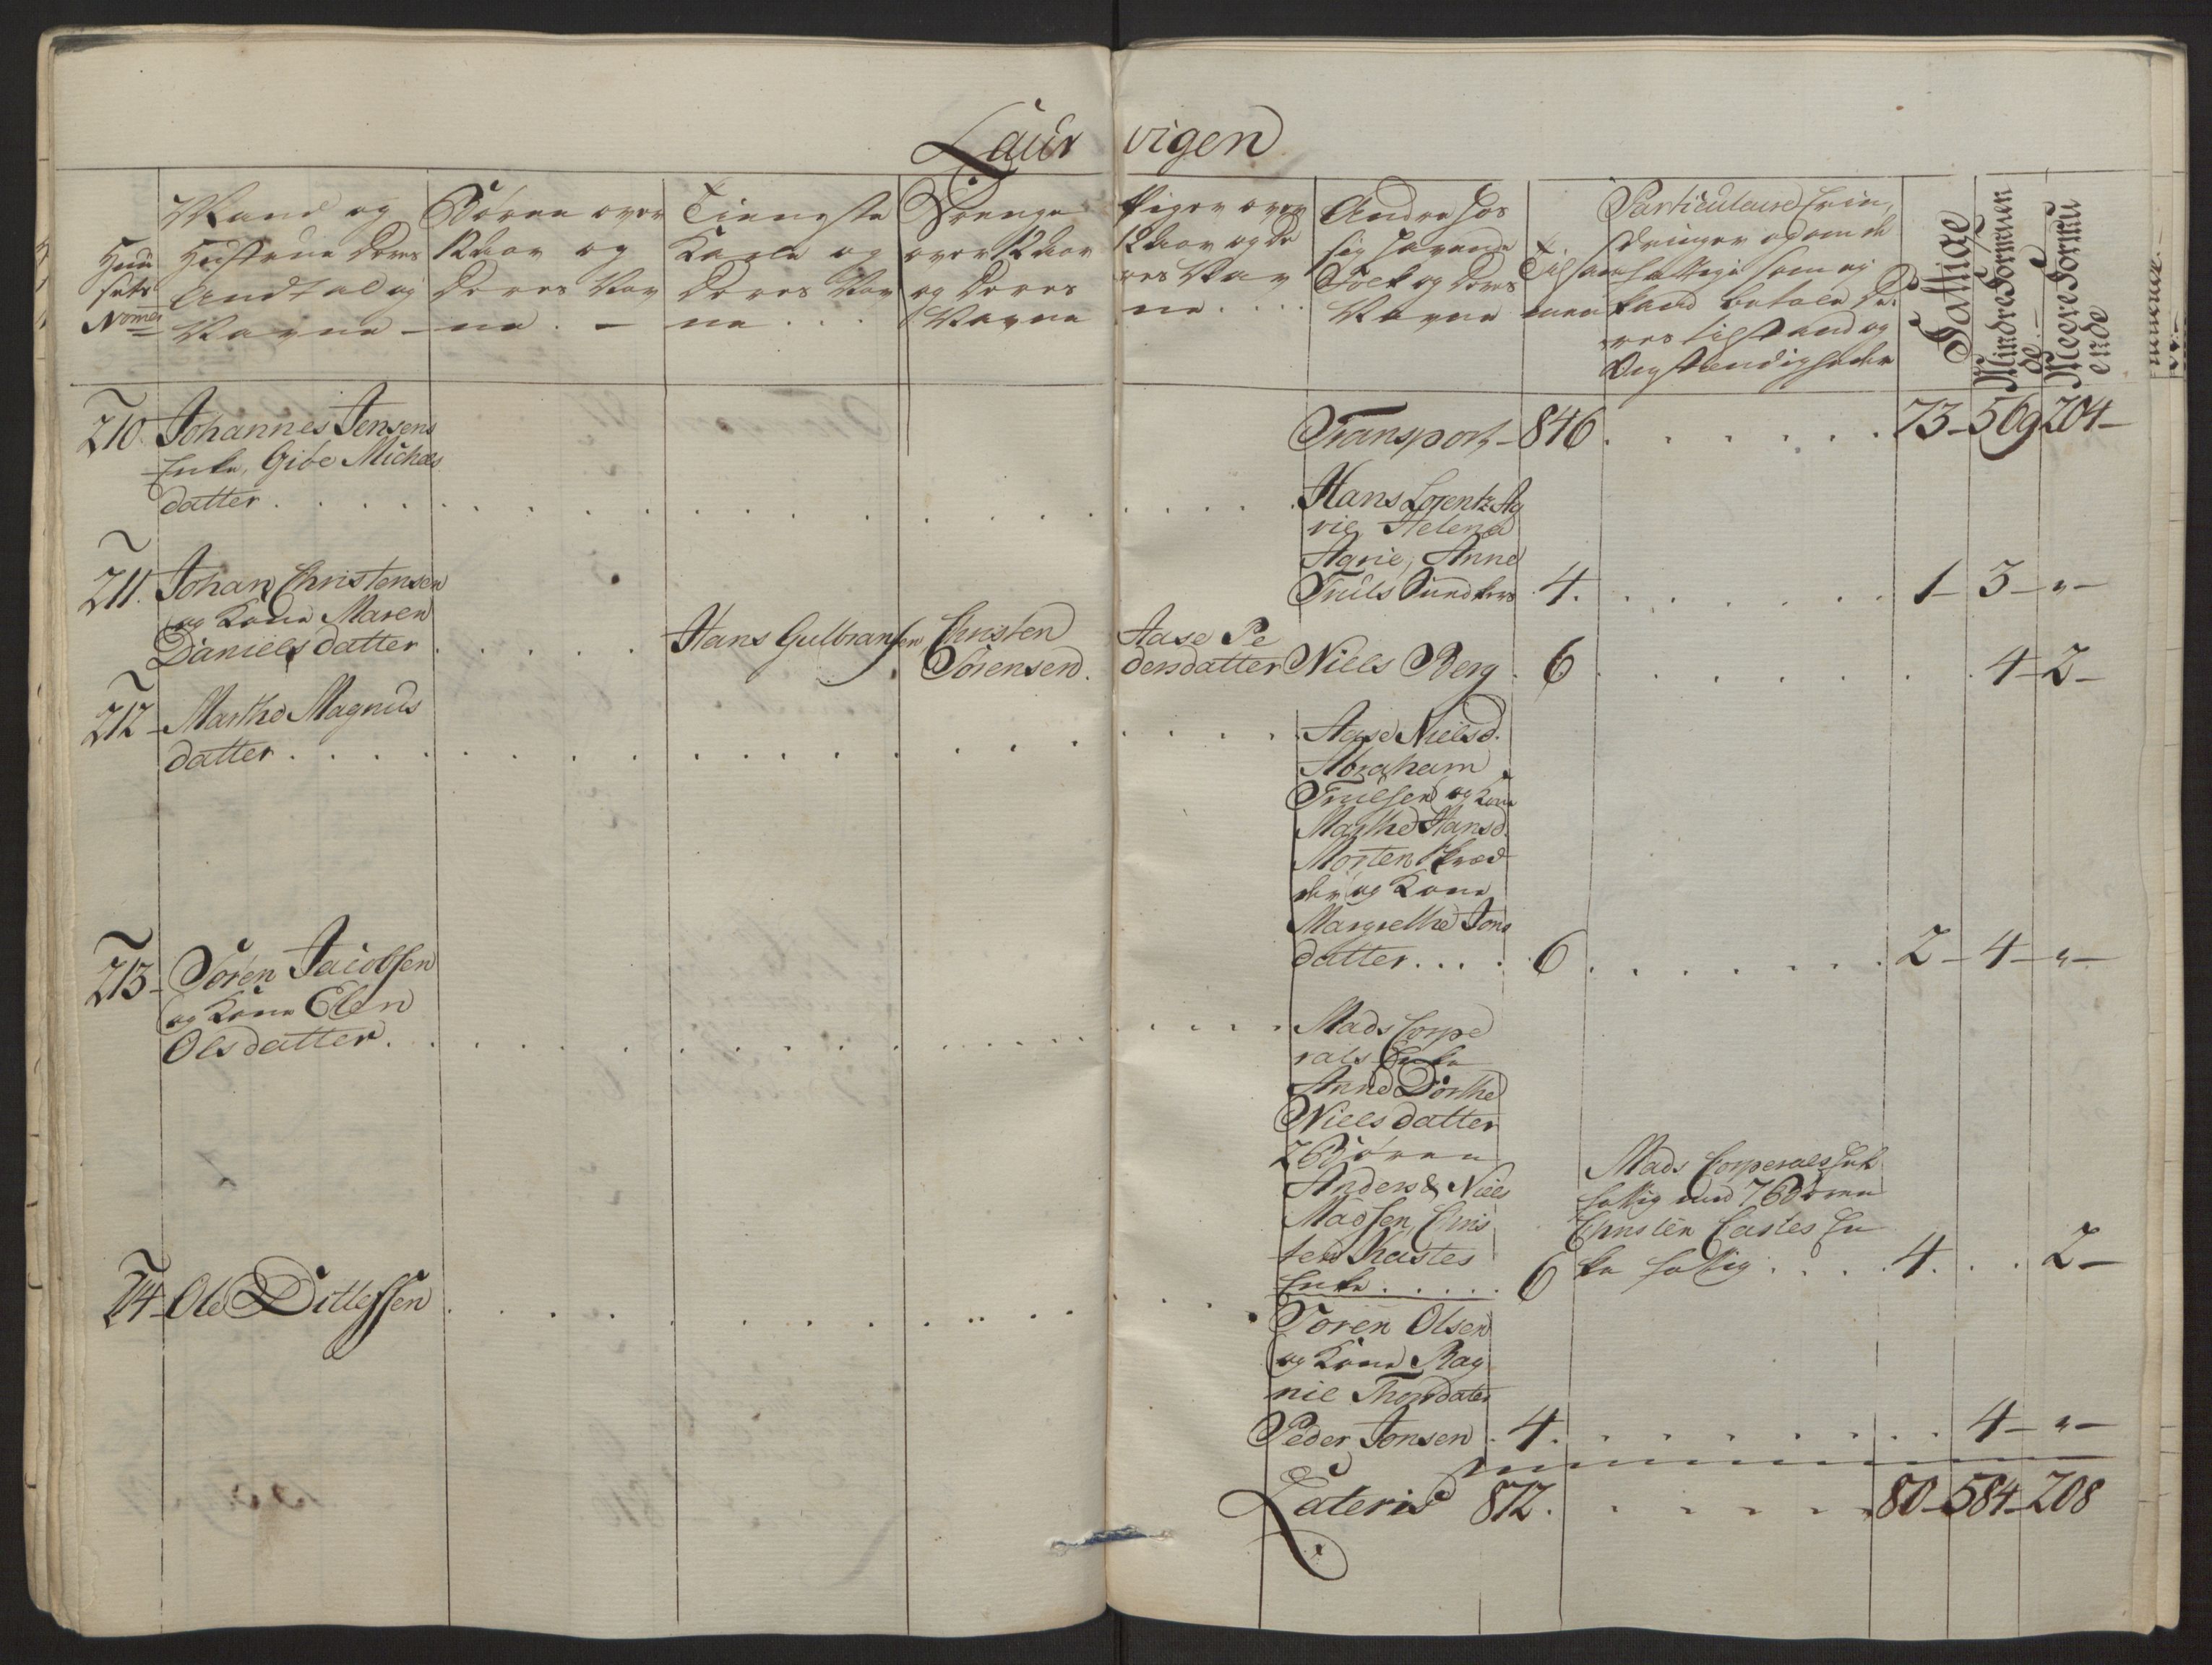 Laur vigen
Huu
sets
Nomer
Mand og
Hustrue Deres
Andtal og
Navne
Börn over
12 Aar og
Deres Nav
ne
Tieneste
Karle og
Deres Nav
ne
Drenge
over 12 Aar
og Deres
Navne
Piger over
12 Aar og De
res Nav
ne
Andre hos
sig havende
Folk og Deres
Navne
Tilsam
men
Particulaire Erin,
dringer og om de
fattige som ej
kand betale De,
res tilstand og
Omstændigheder
Fattige
Mindre Formuen
de
Meere Formu
ende
Transport 846 73 569 204
210 Johannes Jensens
Enke, Gibe Michels
datter
Hans Lorentz Ag
rie, Helena
Agrie, Anne
Truls Sundbers 4 1 3 "
211 Johan Christensen
og Kone Maren
Danielsdatter
Hans Gulbransen
Christen
Sörensen
Aase Pe
dersdatter
Niels Berg 6 4 2
212 Marthe Magnus
datter
Aase Nielsd.
Abraham
Trulsen og Kone
Marthe Hansd.
Morten Skræd
der og Kone
Margrethe Jons
datter 6 2 4 "
213 Sören Jacobsen
og Kone Elen
Olsdatter
Mads Corpe
rals Enke
Anne Dorthe
Nielsdatter
2 Börn
Anders & Niels
Madsen, Chris
ten Kastes
Enke 6
Mads Corporals Enk
fattig med 2 Börn
Christen Castes En
ke fattig 4 2
214 Ole Ditlefssen
Sören Olsen
og Kone Rag
nil Thorsdater
Peder Jonsen 4 4 "
Lateris 872 80 584 208